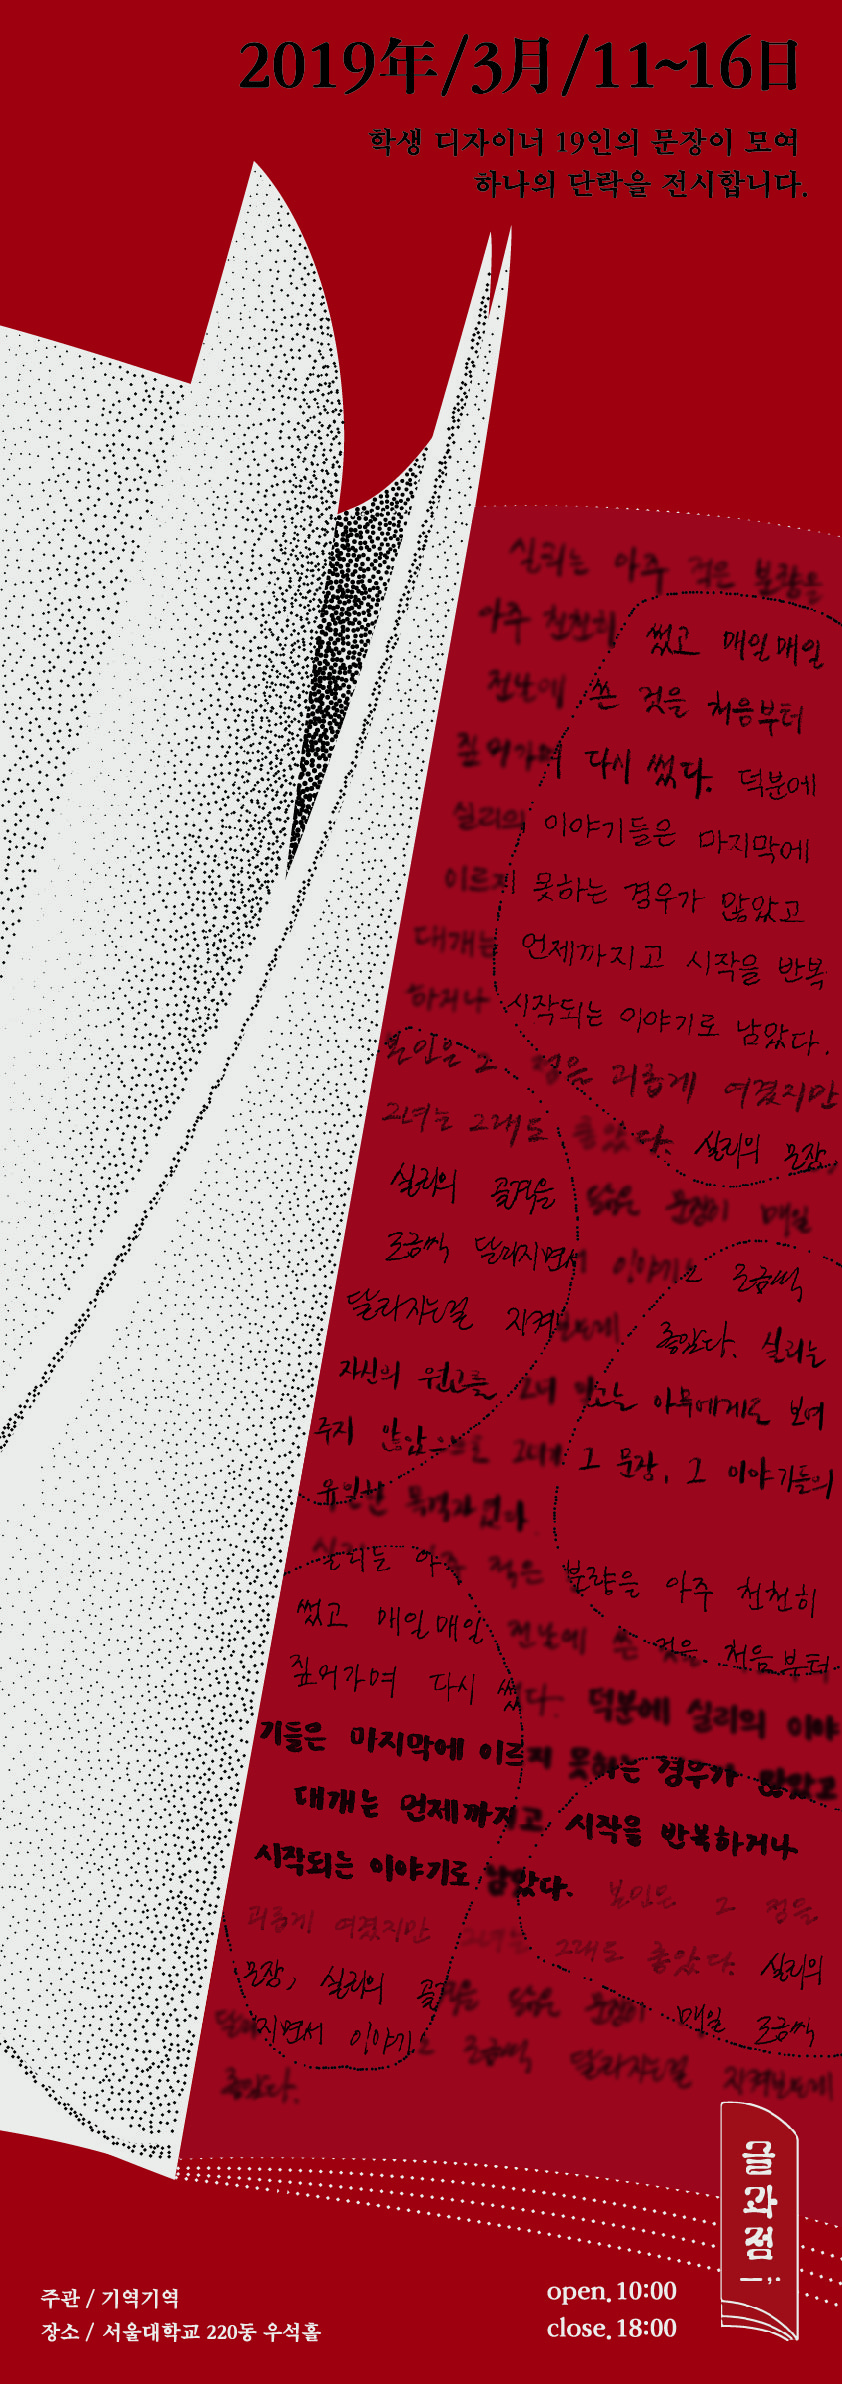 2019年/3月/11~16日
학생 디자이너 19인의 문장이 모여
하나의 단락을 전시합니다.
실리는 아주 적은 분량을
아주 천천히 썼고 매일매일
전날에 쓴 것을 처음부터
짚어가며 다시 썼다. 덕분에
실리의 이야기들은 마지막에
이르지 못하는 경우가 많았고
대개는 언제까지고 시작을 반복
하거나 시작되는 이야기로 남았다.
본인은 그 점을 괴롭게 여겼지만
그녀는 그래도 좋았다. 실리의 문장,
실리의 골격을 닮은 문장이 매일
조금씩 달라지면서 이야기가 조금씩
달라지는걸 지켜보는게 좋았다. 실리는
자신의 원고를 그녀 말고는 아무에게도 보여
주지 않았으므로 그녀가 그 문장, 그 이야기들의
유일한 목격자였다
실리는 아주 적은 분량을 아주 천천히
썼고 매일매일 전날에 쓴 것을 처음부터
짚어가며 다시 썼다. 덕분에 실리의 이야
기들은 마지막에 이르지 못하는 경우가 많았고
대개는 언제까지고 시작을 반복하거나
시작되는 이야기로 남았다. 본인은 그 점을
괴롭게 여겼지만 그녀는 그래도 좋았다. 실리의
문장, 실리의 골격을 닮은 문장이 매일 조금씩
달라지면서 이야기가 조금씩 달라지는걸 지켜보는게
좋았다.
글과점
주관 / 기역기역
장소 / 서울대학교 220동 우석홀
open. 10:00
close. 18:00